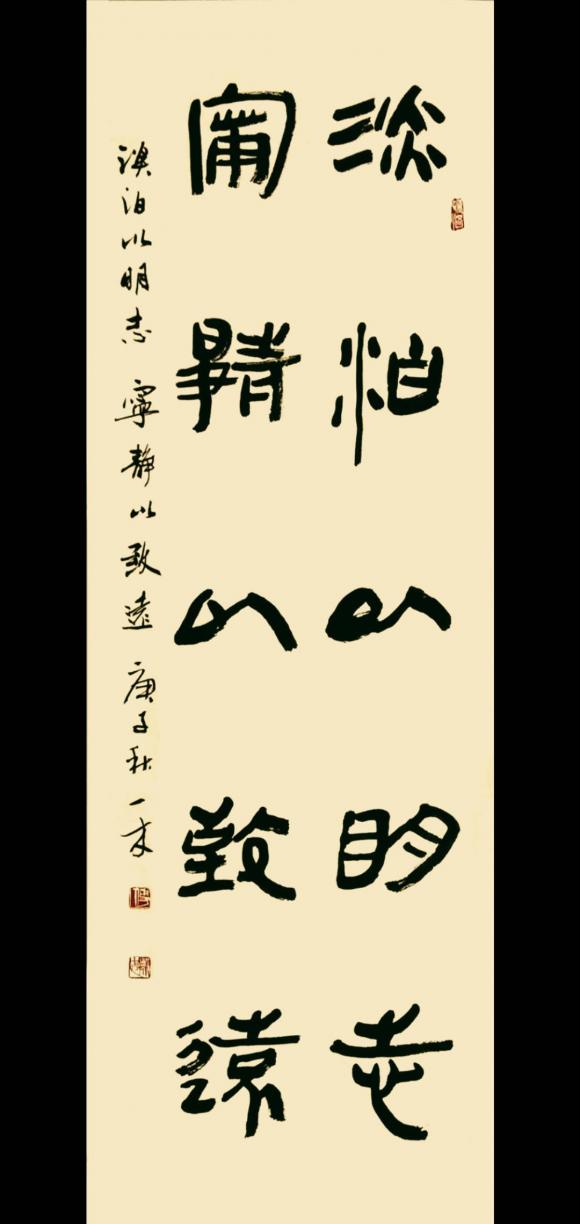 淡泊以明志
甯靜以致遠
淡泊以明志 寧靜以致遠 庚子秋 一禾